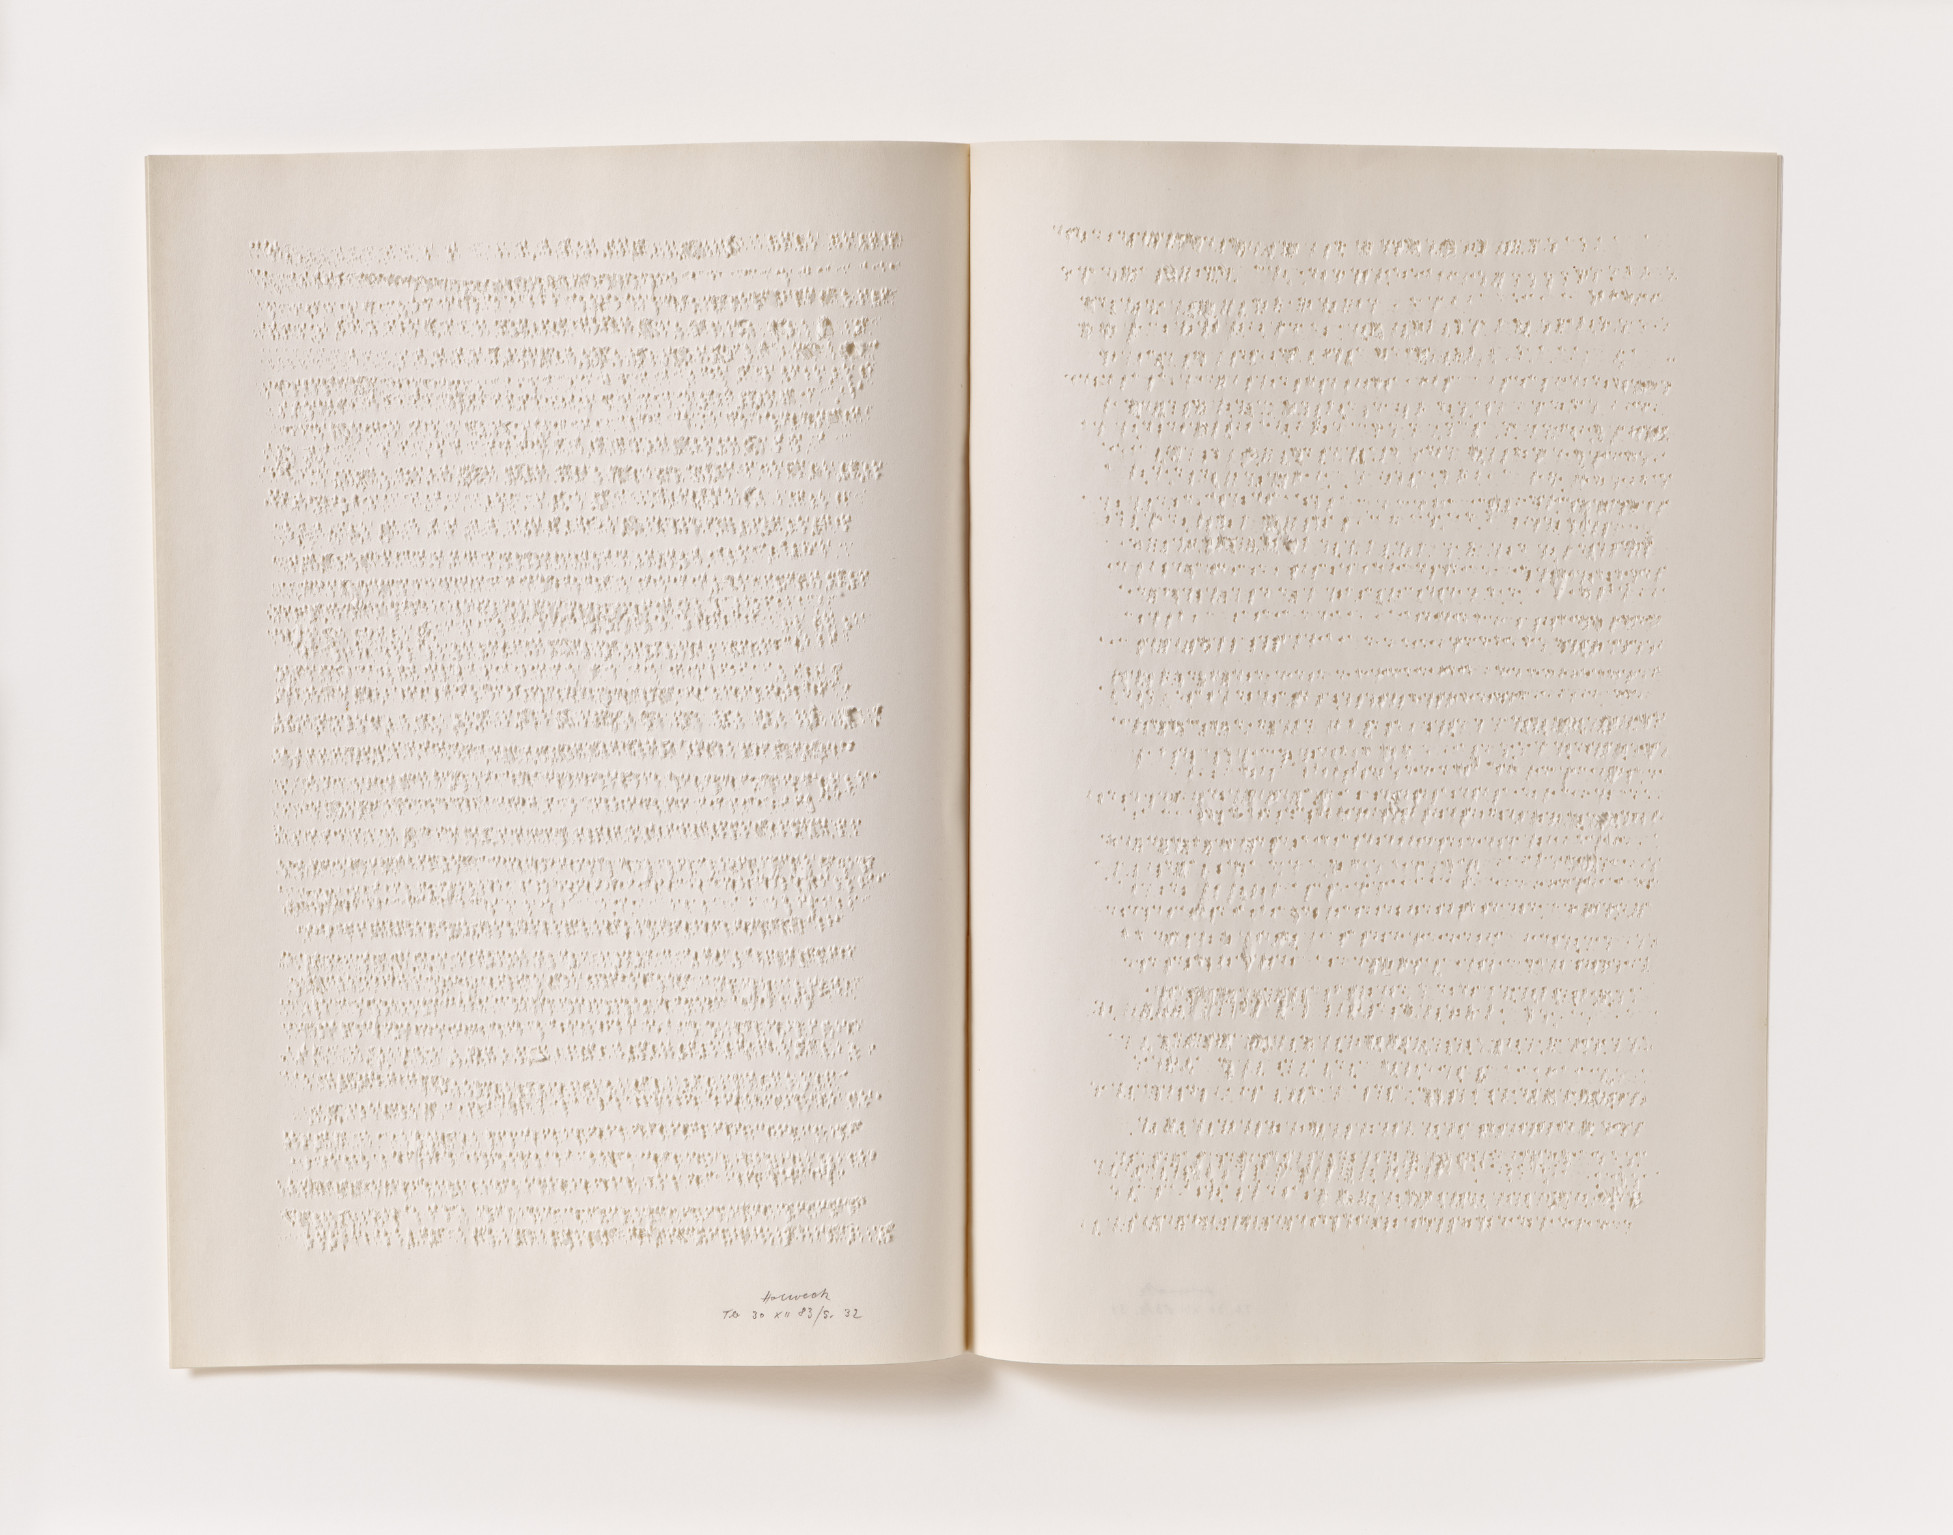 Holweck
30 XII 83/S. 32